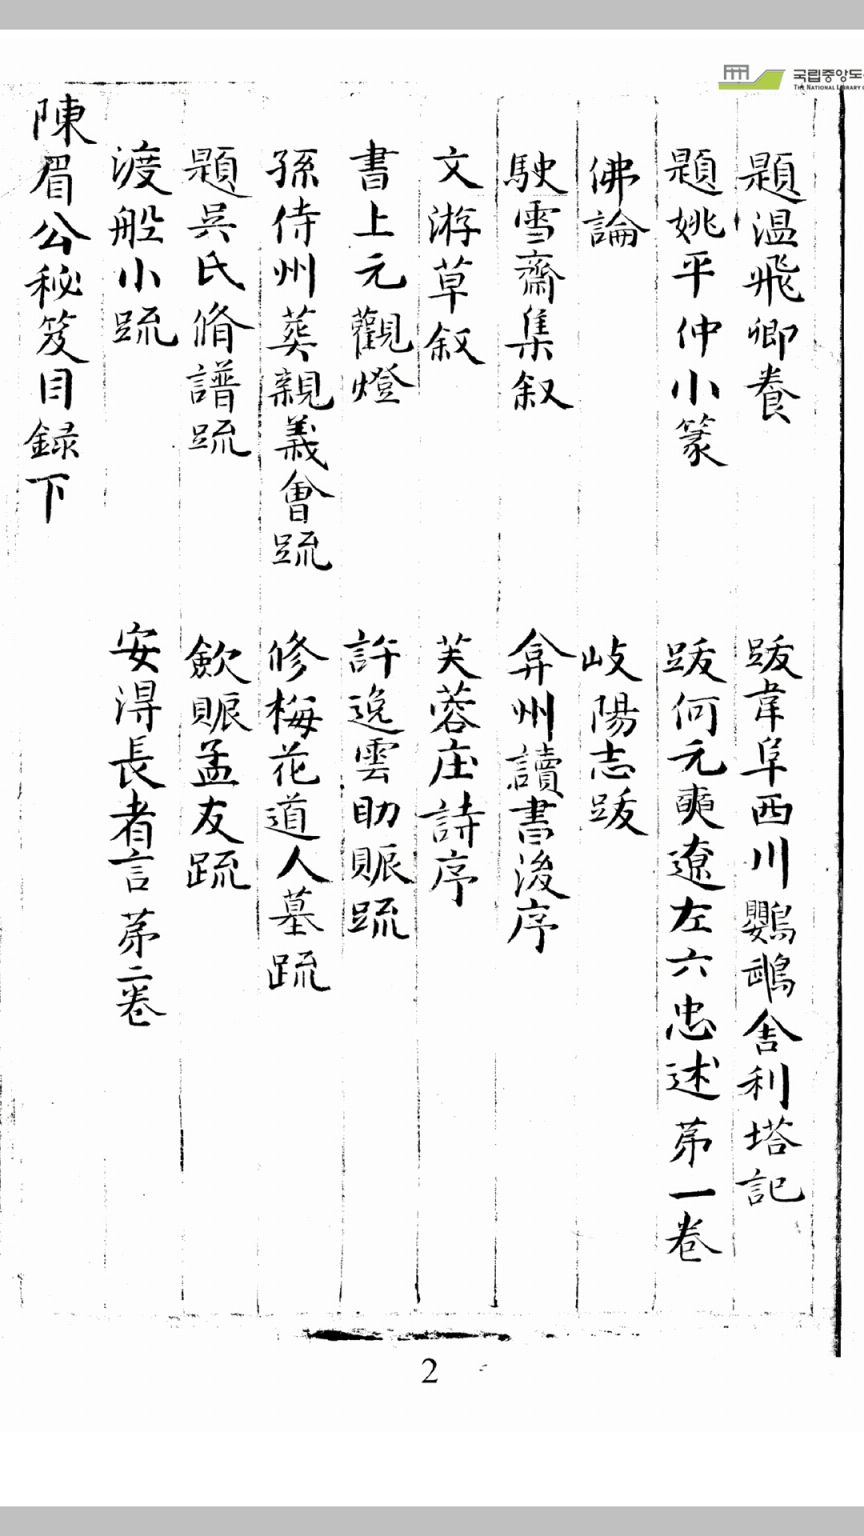 국립중앙도
THE NATIONAL LIBRARY O
題温飛卿養 跋韋皐西川鸚鵡舍利塔記
題姚平仲小篆 跋何元奭遼左六忠述 苐一卷
佛論 岐陽志跋
駛雪齋集叙 弇州讀書後序
文游草叙 芙蓉庄詩序
書上元觀燈 許逸雲助賑疏
孫侍州葬親義會疏 修梅花道人墓疏
題吳氏脩譜疏 歛賑孟友疏
渡船小疏 安得長者言 苐二卷
陳眉公秘笈目録下
2